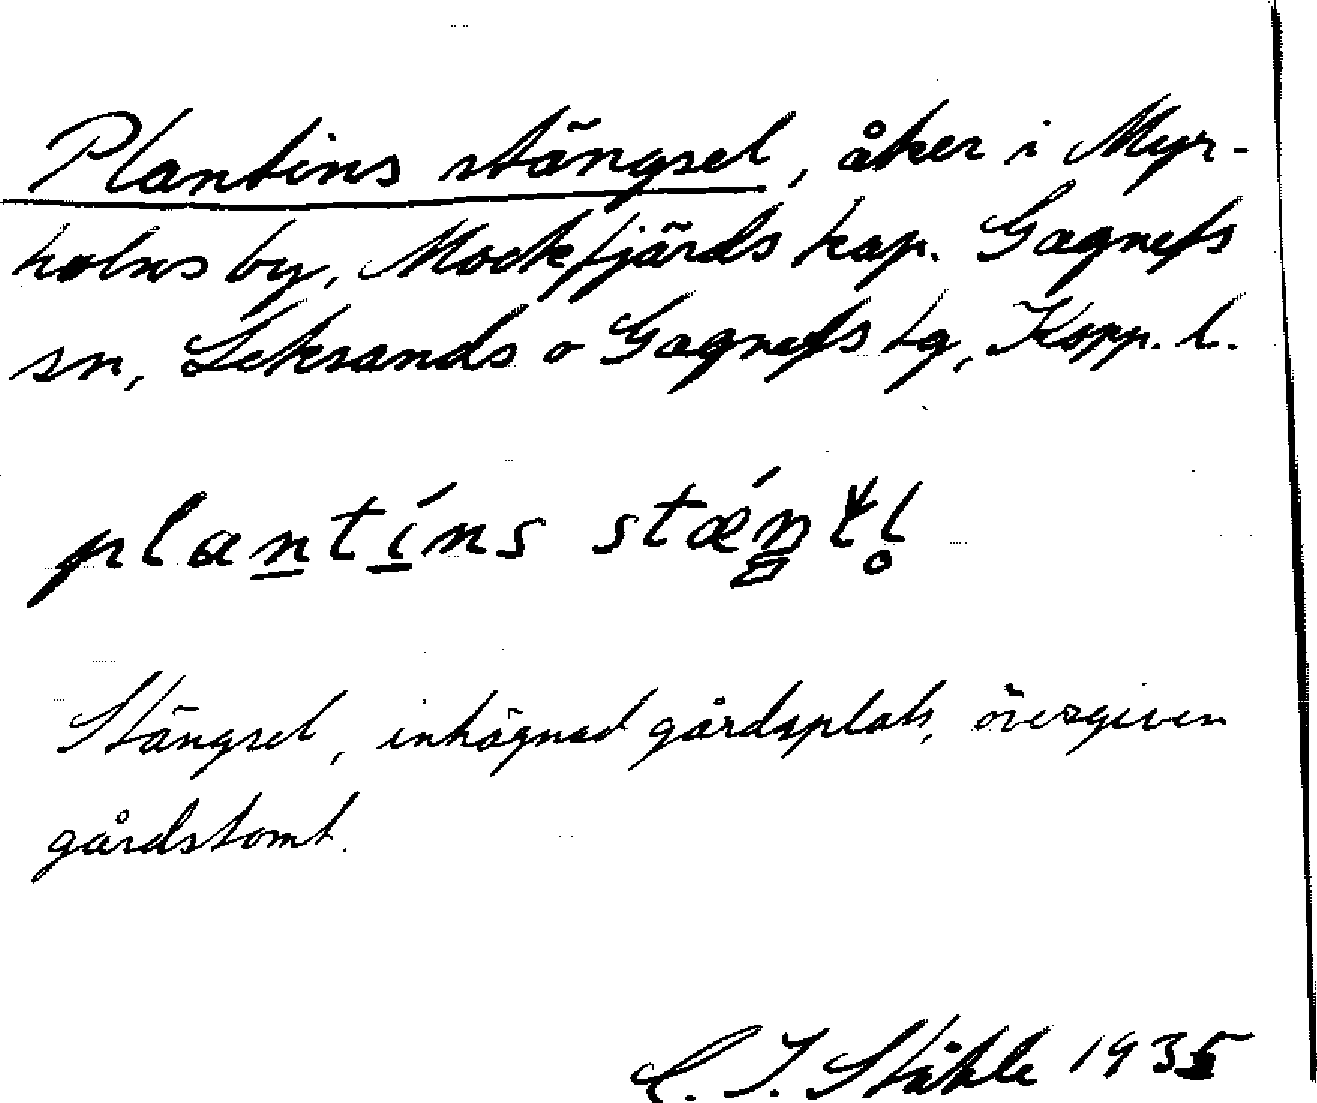 Plantins stängsel, åker i Myr-
holns by, Mockfjärds kap. Gagnefs
sn, Leksands o Gagnefs tg, Kopp. l.
plantíns
Stängsel, inhägnad gårdsplats, övergiven
gårdstomt.
C. I. Ståhle 1935